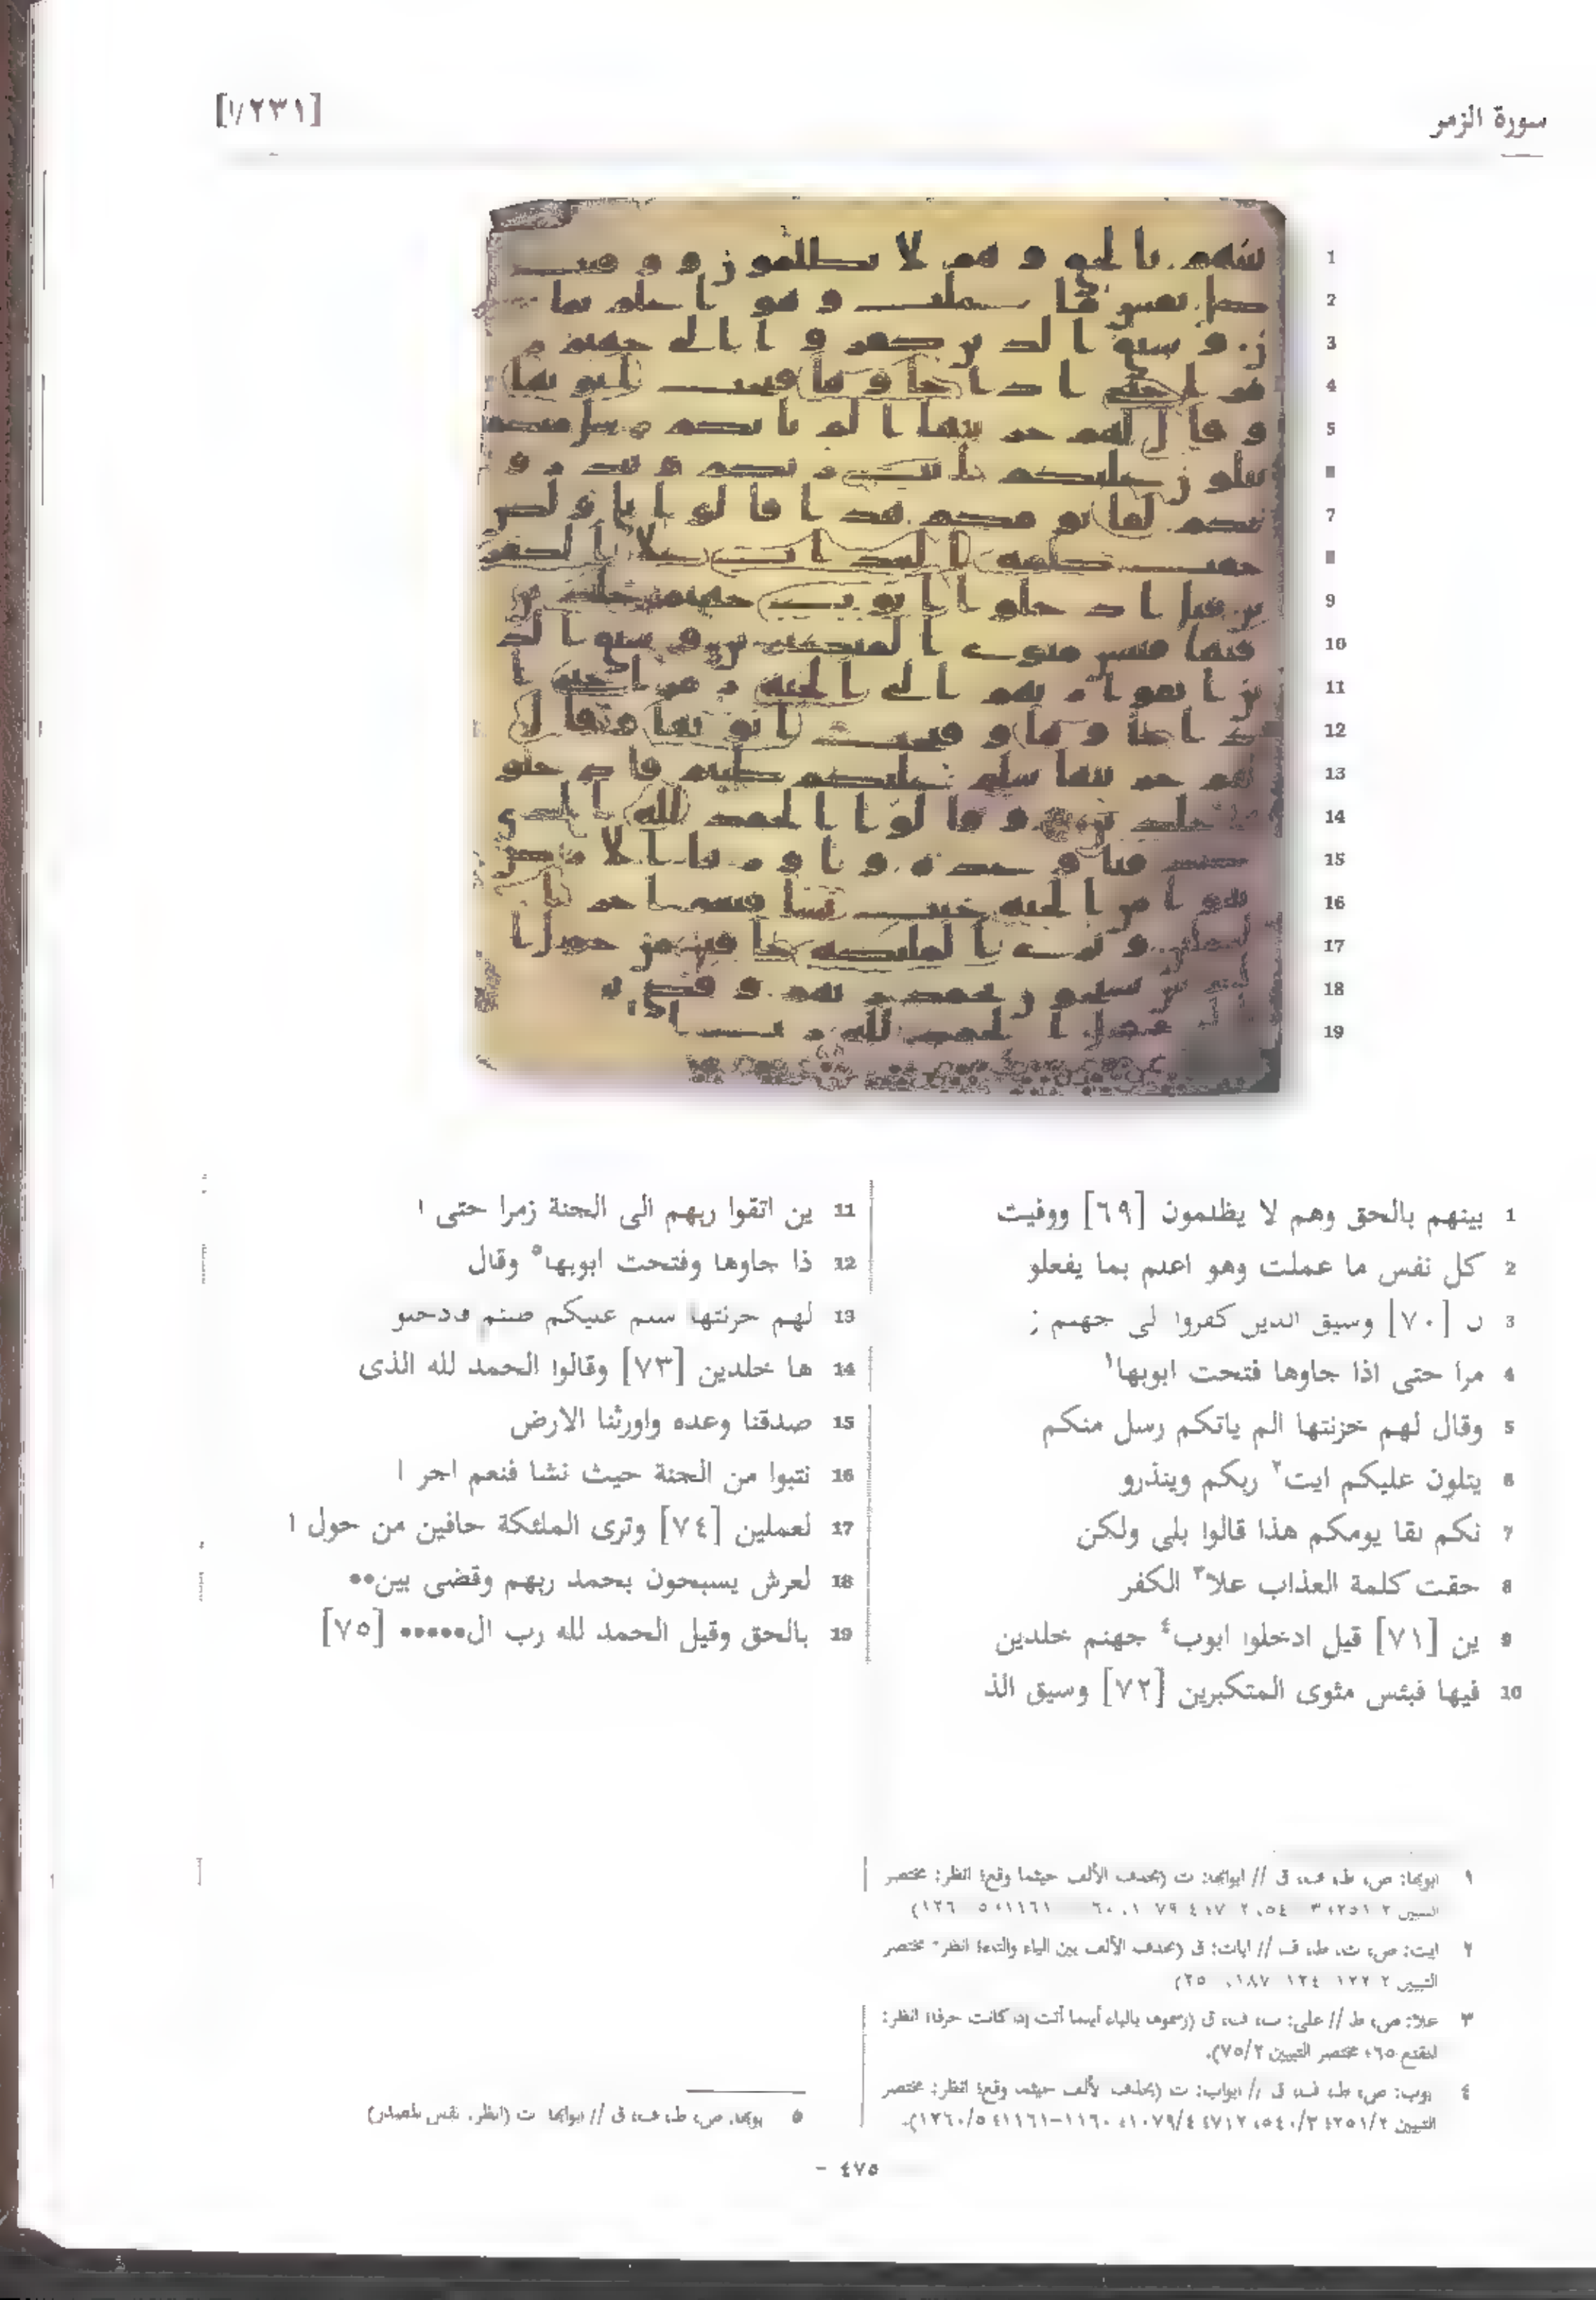 سورة الزمر
[٢٣١/ا]
1 بينهم بالحق وهم لا يظلمون [٦٩] ووفيت
2 كل نفس ما عملت وهو اعلم بما يفعلو
3 ن [٧٠] وسيق الذين كفروا الى جهنم ز
4 مرا حتى اذا جاوها فتحت ابوبها١
5 وقال لهم خزنتها الم ياتكم رسل منكم
6 يتلون عليكم ايت٢ ربكم وينذرو
7 نكم لقا يومكم هذا قالوا بلى ولكن
8 حقت كلمة العذاب علا٣ الكفر
9 ين [٧١] قيل ادخلوا ابوب٤ جهنم خلدين
10 فيها فبئس مثوى المتكبرين [٧٢] وسيق الذ
11 ين اتقوا ربهم الى الجنة زمرا حتى ا
12 ذا جاوها وفتحت ابوبها٥ وقال
13 لهم خزنتها سلم عليكم طبتم فادخلو
14 ها خلدين [٧٣] وقالوا الحمد لله الذى
15 صدقنا وعده واورثنا الارض
16 نتبوا من الجنة حيث نشا فنعم اجر ا
17 لعملين [٧٤] وترى الملئكة حافين من حول ا
18 لعرش يسبحون بحمد ربهم وقضى بين••
19 بالحق وقيل الحمد لله رب ال••••• [٧٥]
١ ابوبها: ص، ط، ف، ق // ابوابها: ت (بحذف الألف حيثما وقع؛ انظر: مختصر
التبيين
٢ ايت: ص، ت، ط، ف // ايات: ق (بحذف الألف بين الياء والتاء؛ انظر: مختصر
التبيين
٣ علا: ص، ط // على: ت، ف، ق (رسموه بالياء أينما أتت إذا كانت حرفا؛ انظر:
المقنع ٦٥؛ مختصر التبيين ٧٥/٢).
٤ ابوب: ص، ط، ف، ق // ابواب: ت (بحذف الألف حيثما وقع؛ انظر: مختصر
التبيين
٥ ابوبها: ص، ط، ف، ق // ابوابها: ت (انظر: نفس المصدر)
- ٤٧٥